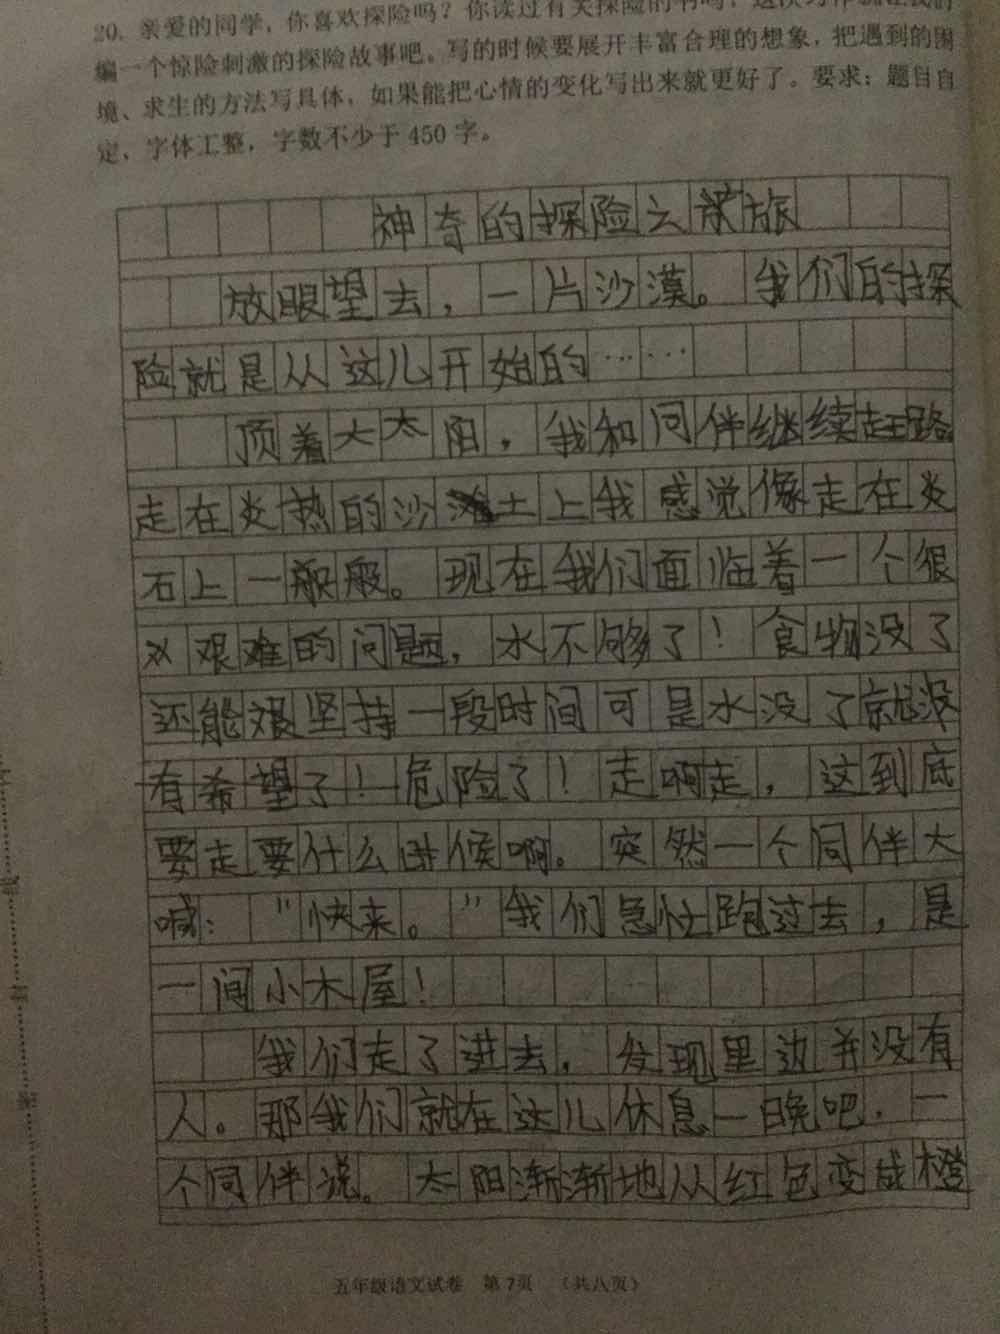 20. 亲爱的同学，你喜欢探险吗？你读过有关探险的书吗，这次习作就让我们
编一个惊险刺激的探险故事吧。写的时候要展开丰富合理的想象，把遇到的困
境、求生的方法写具体，如果能把心情的变化写出来就更好了。要求：题目自
定，字体工整，字数不少于450字。
神奇的探险之旅
放眼望去，一片沙漠。我们的探
险就是从这儿开始的……
顶着大太阳，我和同伴继续赶路。
走在炎热的沙土上我感觉像走在炎
石上一般般。现在我们面临着一个很
艰难的问题，水不够了！食物没了
还能艰坚持一段时间可是水没了就没
有希望了！危险了！走啊走，这到底
要走要什么时候啊。突然一个同伴大
喊：“快来。”我们急忙跑过去，是
一间小木屋！
我们走了进去，发现里边并没有
人。那我们就在这儿休息一晚吧，一
个同伴说。太阳渐渐地从红色变成橙
五年级语文试卷 第7页 （共八页）
线
封
密